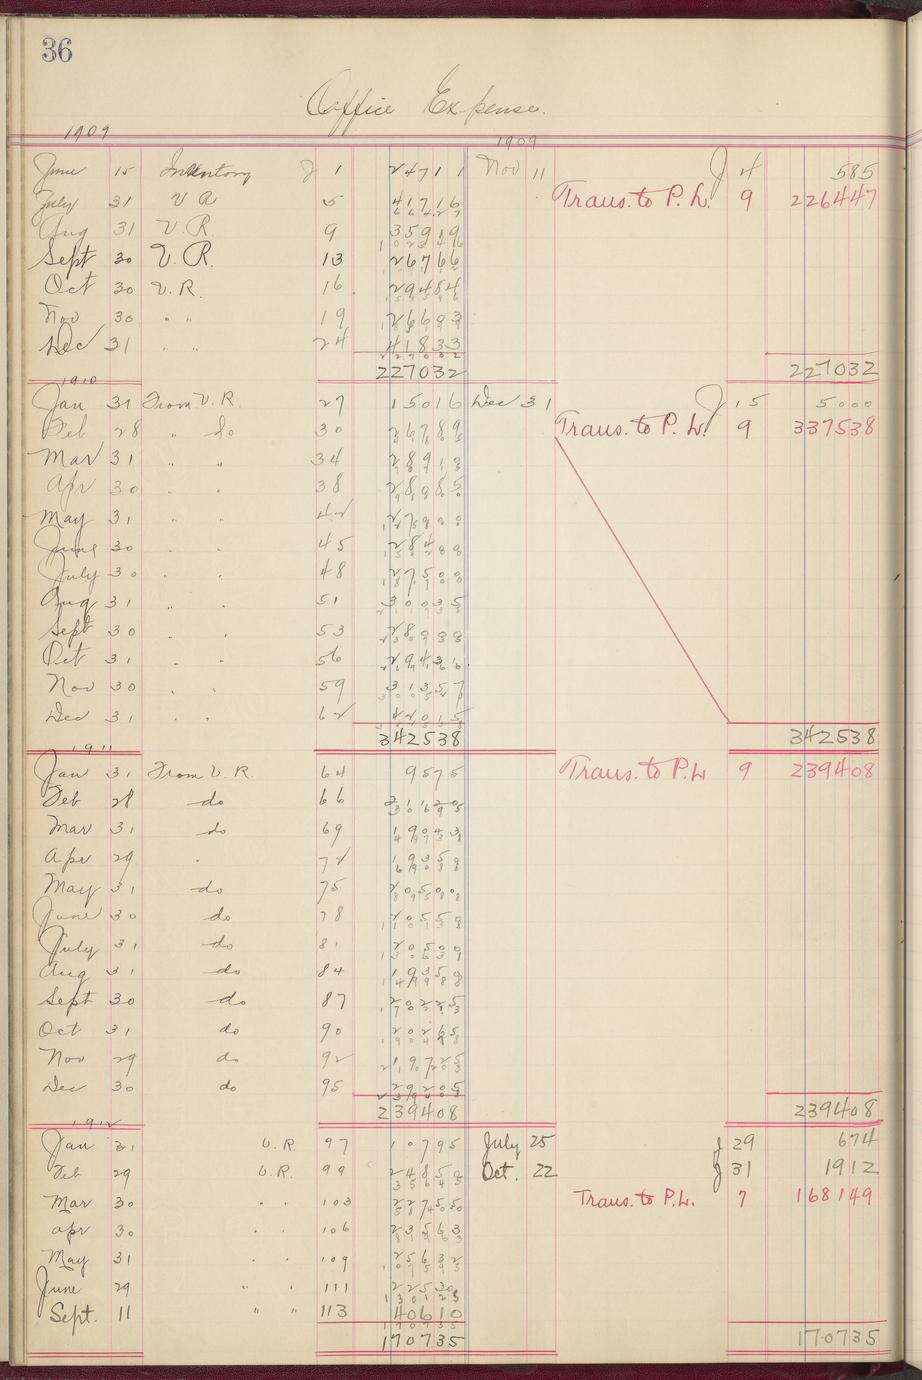 36
Office Expense.
1909 1909
June 15 Inventory J 1 24711 Nov 11 J 4 585
July 31 V R 5 41716 Trans. to P. L. 9 226447
66427
Aug 31 V. R. 9 35919
102346
Sept 30 V. R. 13 26766
Oct 30 V. R. 16 29484
Nov 30 " " 19 26603
Dec 31 " " 24 41833
227032
227032 227032
1910
Jan 31 From V. R. 27 15016 Dec 31 J 15 5000
Feb 28 " do 30 26789 Trans. to P. L. 9 337538
Mar 31 " " 34
Apr 30 " " 38 28085
May 31 " " 42
June 30 " " 45
July 30 " " 48 27500
Aug 31 " " 51 30035
Sept 30 " " 53
Oct 31 " " 56
Nov 30 " " 59 31357
Dec 31 " " 62 42015
342538 342538
1911
Jan 31 From V. R. 64 9575 Trans. to P. L 9 239408
Feb 28 do 66
Mar 31 do 69
Apr 29 " 72 19358
May 31 do 75
June 30 do 78 20558
July 31 do 81 20500
Aug 31 do 84 19358
Sept 30 do 87 20225
Oct 31 do 90 20265
Nov 29 do 92 19725
Dec 30 do 95 29205
239408 239408
1912
Jan 31 V. R. 97 10795 July 25 J 29 674
Feb 29 V. R. 99 24850 Oct. 22 J 31 1912
35645
Mar 30 " " 103 22750 Trans. to P. L. 7 168149
Apr 30 " " 106 23563
May 31 " " 109 25632
June 29 " " 111 22530
Sept. 11 " " 113 40610
170735
170735 170735